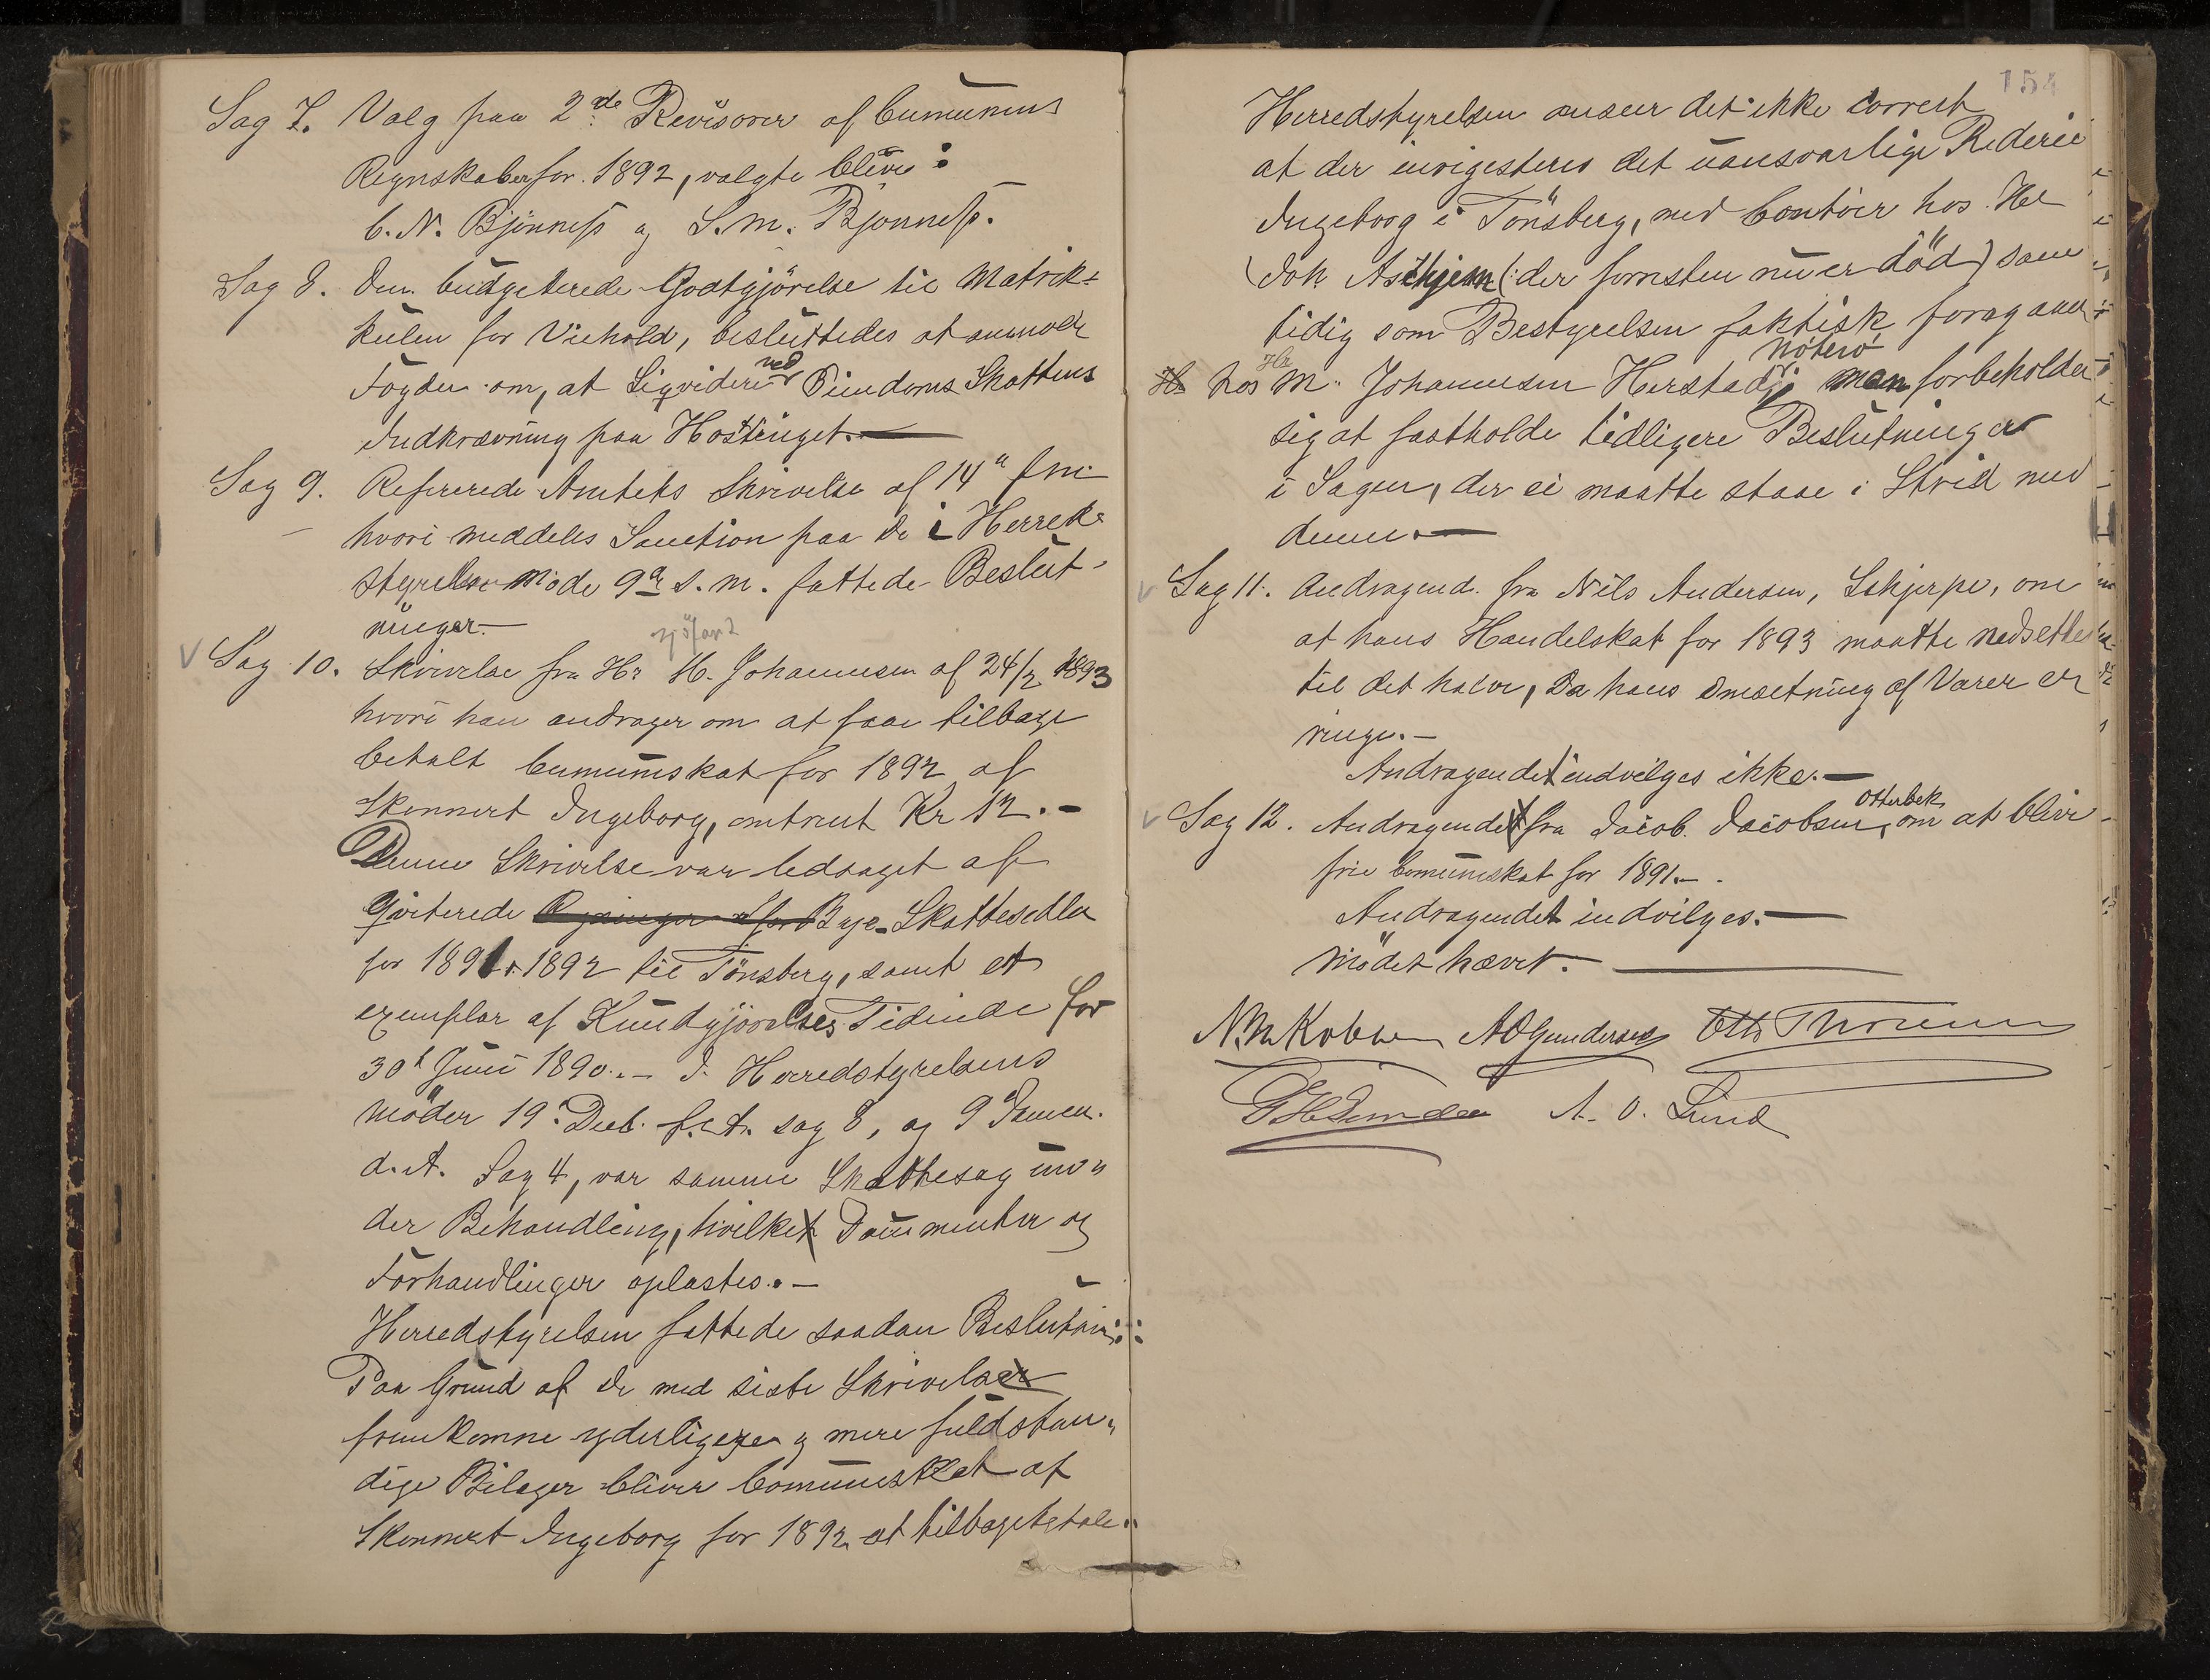 Sag 7. Valg paa 2de Revisorer af Cumunens
Regnskaber for 1892, valgte blive:
C. N. Bjönness og S. M. Bjonness.
Sag 8. Den budgeterede Godtgjörelse til Matrik-
kulen for Viehold, besluttedes at anmode
Fogden om, at Liqvidere ved Eiendoms Skattens
Indkrævning paa Hostthinget.—
Sag 9. Refererede Amtets Skrivelse af 14" fm
hvori meddeles Sanction paa de i Herreds
styrelsen Möde 9de s. m. fattede Beslut-
ninger.—
Sag 10. Skrivelse fra Hr M. Johannesen af 24/2 1893
hvori han andrager om at faae tilbage
betalt Cumunskat for 1892 af
Skonnert Ingeborg, omtrent Kr 12.-
Denne Skrivelse var ledsaget af
Qviterede Byes Skattesedler
for 1891 & 1892 til Tönsberg, samt et
exemplar af Kundgjörelses Tidende for
30te Juni 1890.— I Herredstyrelsens
möder 19. Decb. f. A. sag 8, og 9 Januar.
d. A. Sag 4, var samme Skattesag un-
der Behandling, hvilket Documenter og
Forhandlinger oplæstes.—
Herredstyrelsen fattede saadan Beslutning:
Paa Grund af de med siste Skrivelser
fremkomne yderligere og mere fuldstæn-
dige Bilager bliver Comuneskat af
Skonnert Ingeborg for 1892 at tilbagebetale.
154
Herredstyrelsen anseer det ikke correct
at der invigesteres det uansvarlige Rederie
Ingeborg i Tönsberg, med Contoir hos Hr
Joh Aschjem (: der forresten nu er död) sam
tidig som Bestyrelsen faktisk foregaaer
hos Hr M. Johannesen Herstad Nöterö man forbeholder
sig at fastholde tidligere Beslutninger
i Sagen, der ei maatte staae i Strid med
denne.—
Sag 11. Andragende fra Nils Andersen, Skjerpe, om
at hans Handelskat for 1893 maatte nedsettes
til det halve, da hans Omsetning af Varer er
ringe.—
Andragendet indvilges ikke.—
Sag 12. Andragende fra Jacob Jacobsen, Otterbek om at blive
frie Comuneskat for 1891.—
Andragendet indvilges.—
Mödet hævet.—
A O Gundersen Otto Thoresen
A. O. Lund